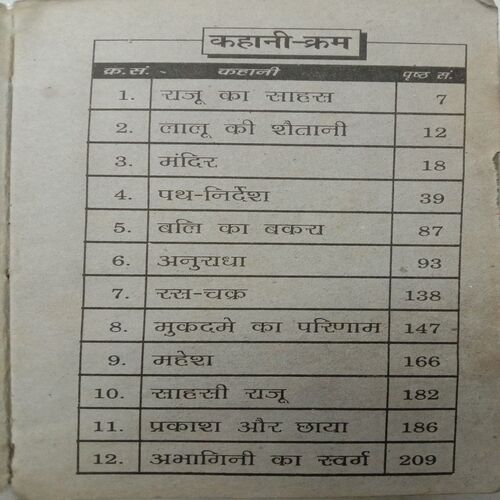 कहानी-क्रम
क्र.सं. कहानी पृष्ठ सं.
1. राजू का साहस 7
2. लालू की शैतानी 12
3. मंदिर 18
4. पथ-निर्देश 39
5. बलि का बकरा 87
6. अनुराधा 93
7. रस-चक्र 138
8. मुकदमे का परिणाम 147
9. महेश 166
10. साहसी राजू 182
11. प्रकाश और छाया 186
12. अभागिनी का स्वर्ग 209